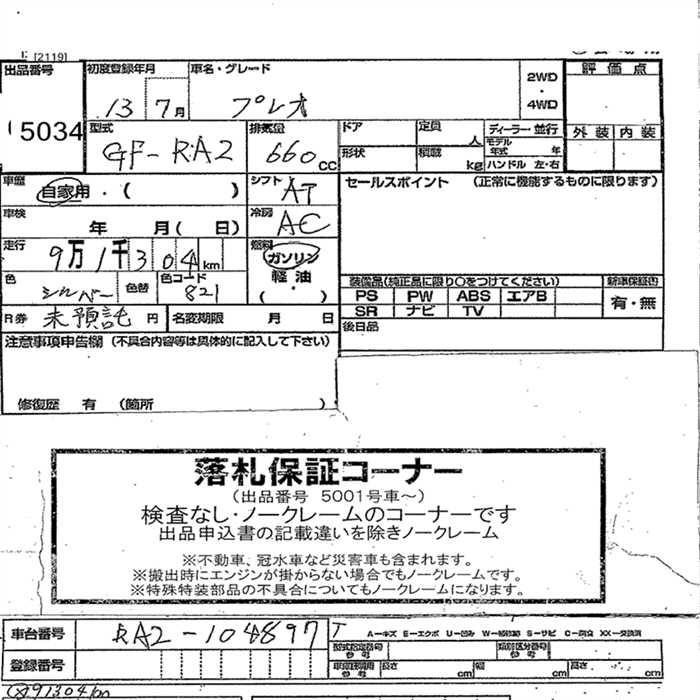 [2119]
出品番号 初度登録年月 車名・グレード 2WD ・ 4WD 評価点
5034 13 7月 プレオ
型式 排気量 ドア 定員 人 ディーラー・並行 外装 内装
GF-RA2 660cc 形状 積載 kg モデル年式 年 ハンドル 左・右
車歴 自家用・( ) シフト AT セールスポイント (正常に機能するものに限ります)
車検 年 月( 日) 冷房 AC
走行 9万1千304km 燃料 ガソリン 軽油 ( ・ )
色 シルバー 色替 色コード 821
装備品(純正品に限り○をつけてください) 新車保証書
PS PW ABS エアB 有・無
SR ナビ TV
R券 未預託 円 名変期限 月 日 後日品
注意事項申告欄 (不具合内容等は具体的に記入して下さい)
修復歴 有 (箇所 )
落札保証コーナー
(出品番号 5001号車~)
検査なし・ノークレームのコーナーです
出品申込書の記載違いを除きノークレーム
※不動車、冠水車など災害車も含まれます。
※搬出時にエンジンが掛からない場合でもノークレームです。
※特殊特装部品の不具合についてもノークレームになります。
車台番号 RA2-104897 A-キズ E-エクボ U-凹み W-補修跡 S-サビ C-腐食 XX-交換済
型式指定番号 参考 類別区分番号 参考
登録番号 長さ cm 幅 cm 高さ cm
91304km